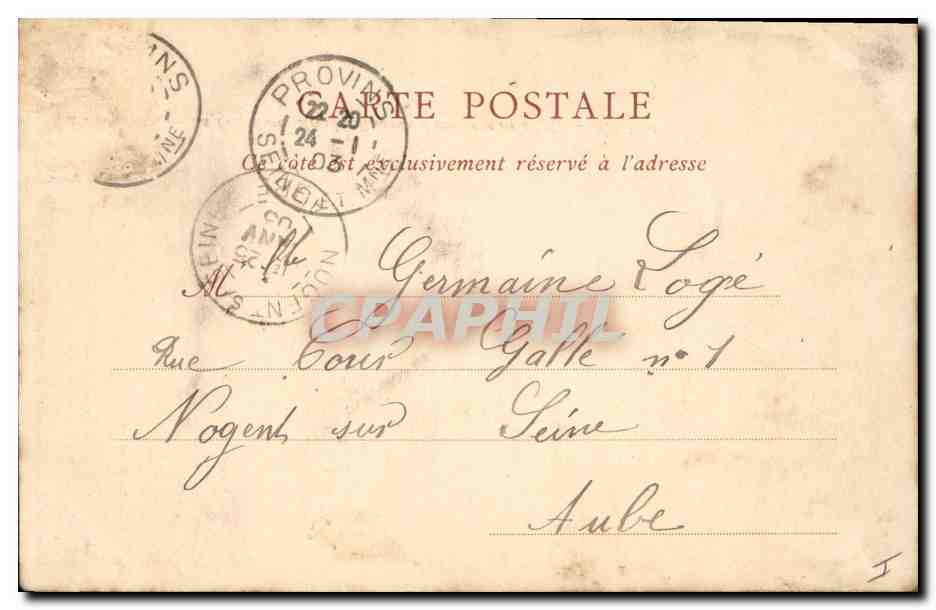 PROVINS
22 20
24 - 1
03
SEINE ET MNE
CARTE POSTALE
Ce côté est exclusivement réservé à l'adresse
NOGENT S SEINE
Mlle Germaine Logé
CPAPHIL
Rue Cour Galle no 1
Nogent sur Seine
Aube
I